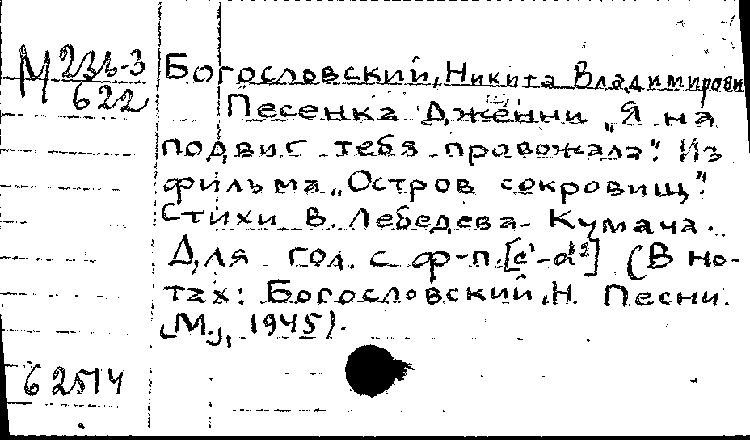 М 235-3
622
Богословский, Никита Владимирович
Песенка Дженни „Я на
подвиг тебя провожала". Из
фильма „Остров сокровищ".
Стихи В. Лебедева-Кумача.
Для гол. с ф-п. [c¹-d²] (В но-
тах: Богословский, Н. Песни.
М., 1945).
62514